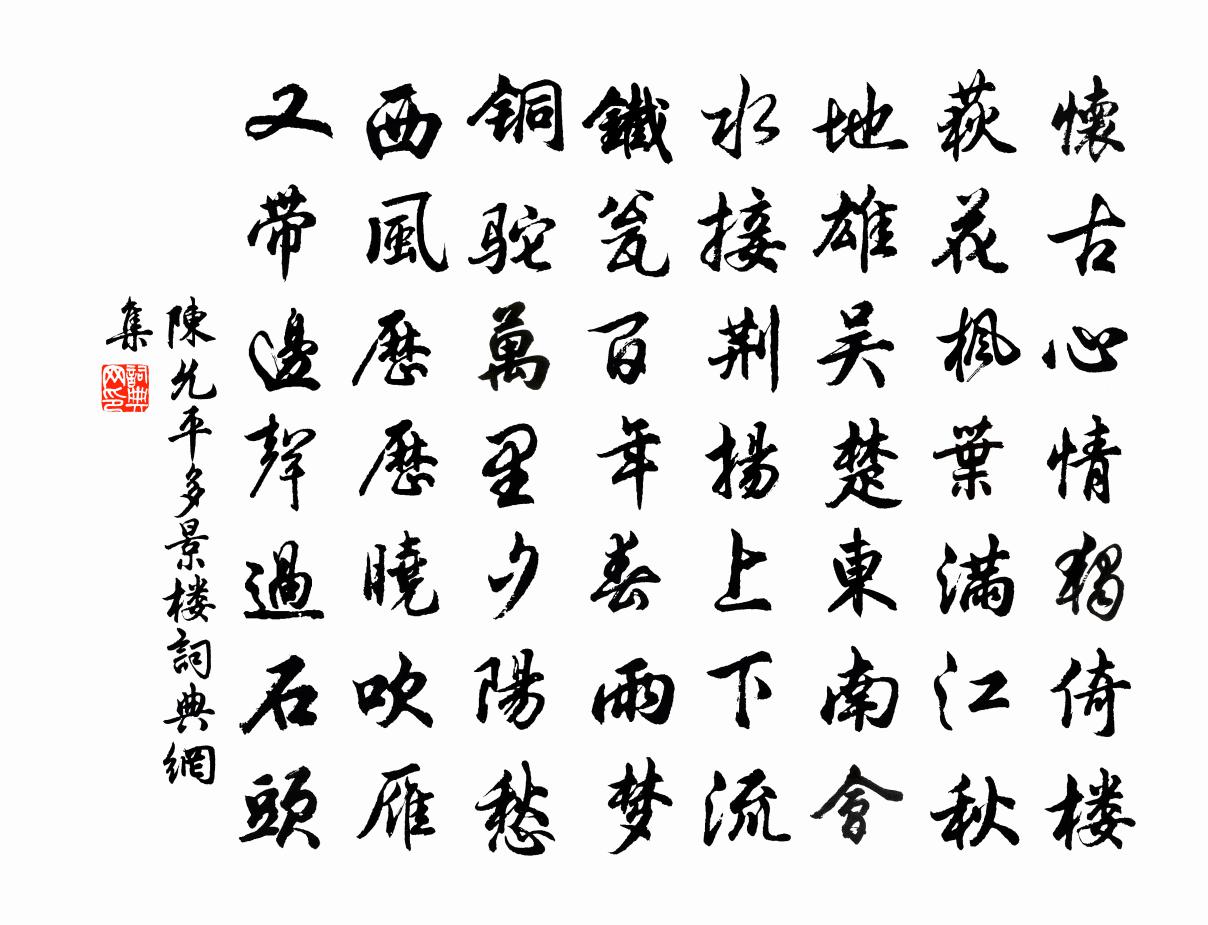 懷古心情獨倚楼
萩花楓葉滿江秋
地雄吴楚東南會
水接荆揚上下流
鐵瓮百年春雨梦
铜驼萬里夕陽愁
西風歷歷曉吹雁
又帶邊聲過石頭
陳允平多景楼詞典網
集
詞典
网印